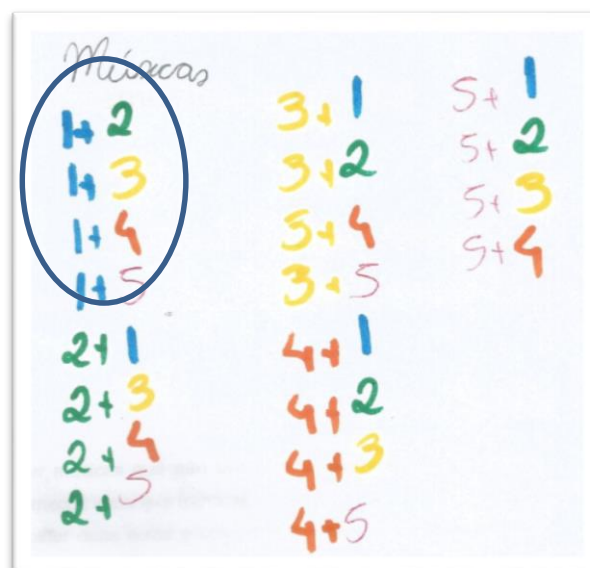 Músicas
1+2
1+3
1+4
1+5
2+1
2+3
2+4
2+5
3+1
3+2
5+4
3+5
4+1
4+2
4+3
4+5
5+1
5+2
5+3
5+4